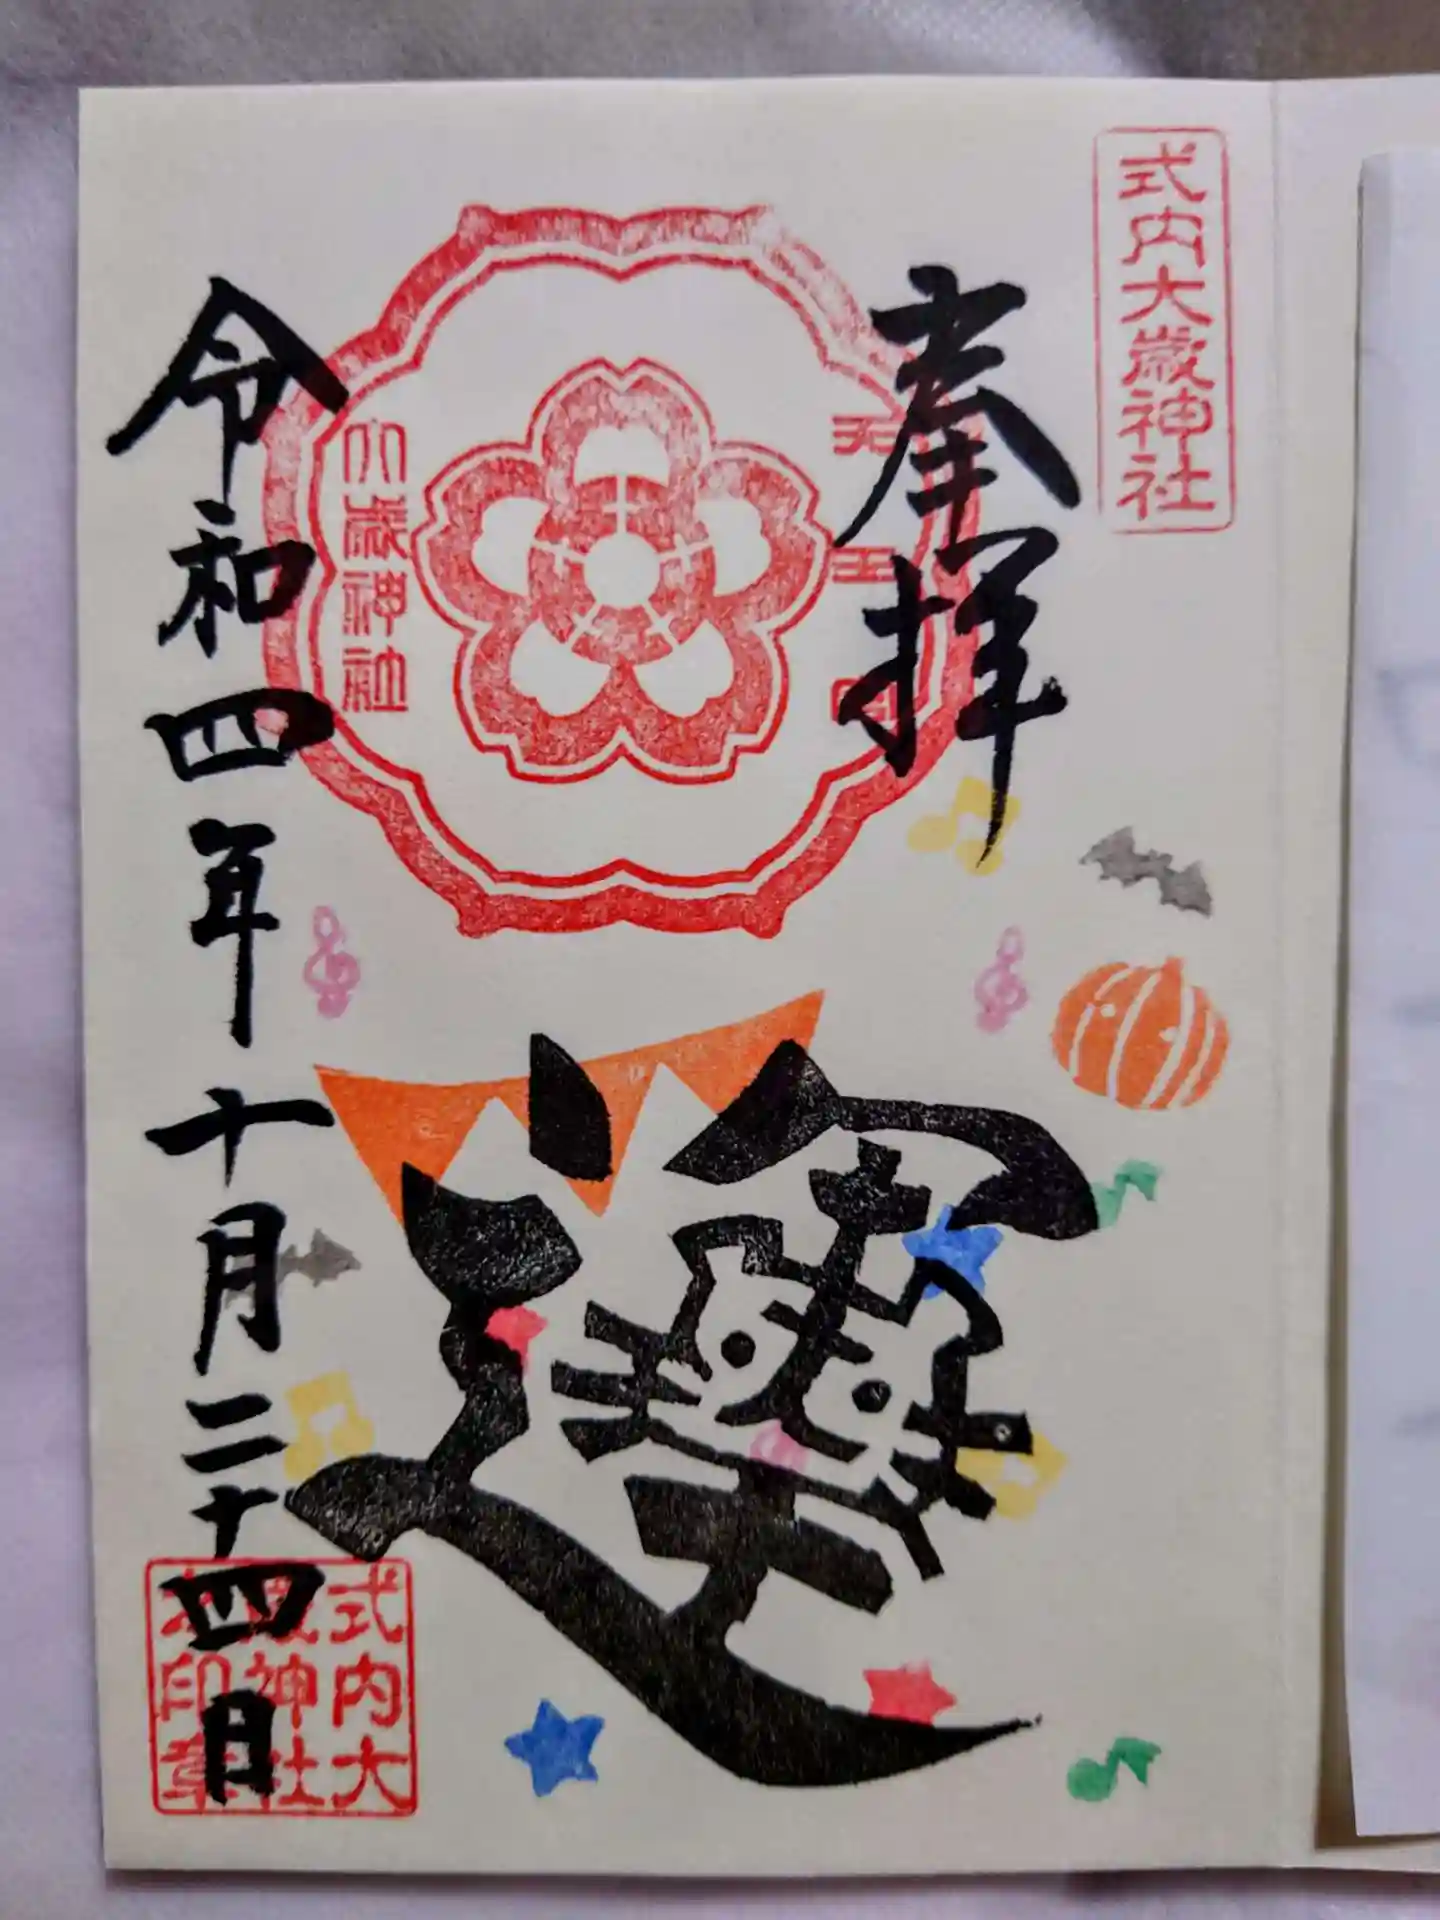 式内大歳神社
奉拝
天王宮
大歳神社
令和四年十月二十四日
式内大
歳神社
之印章